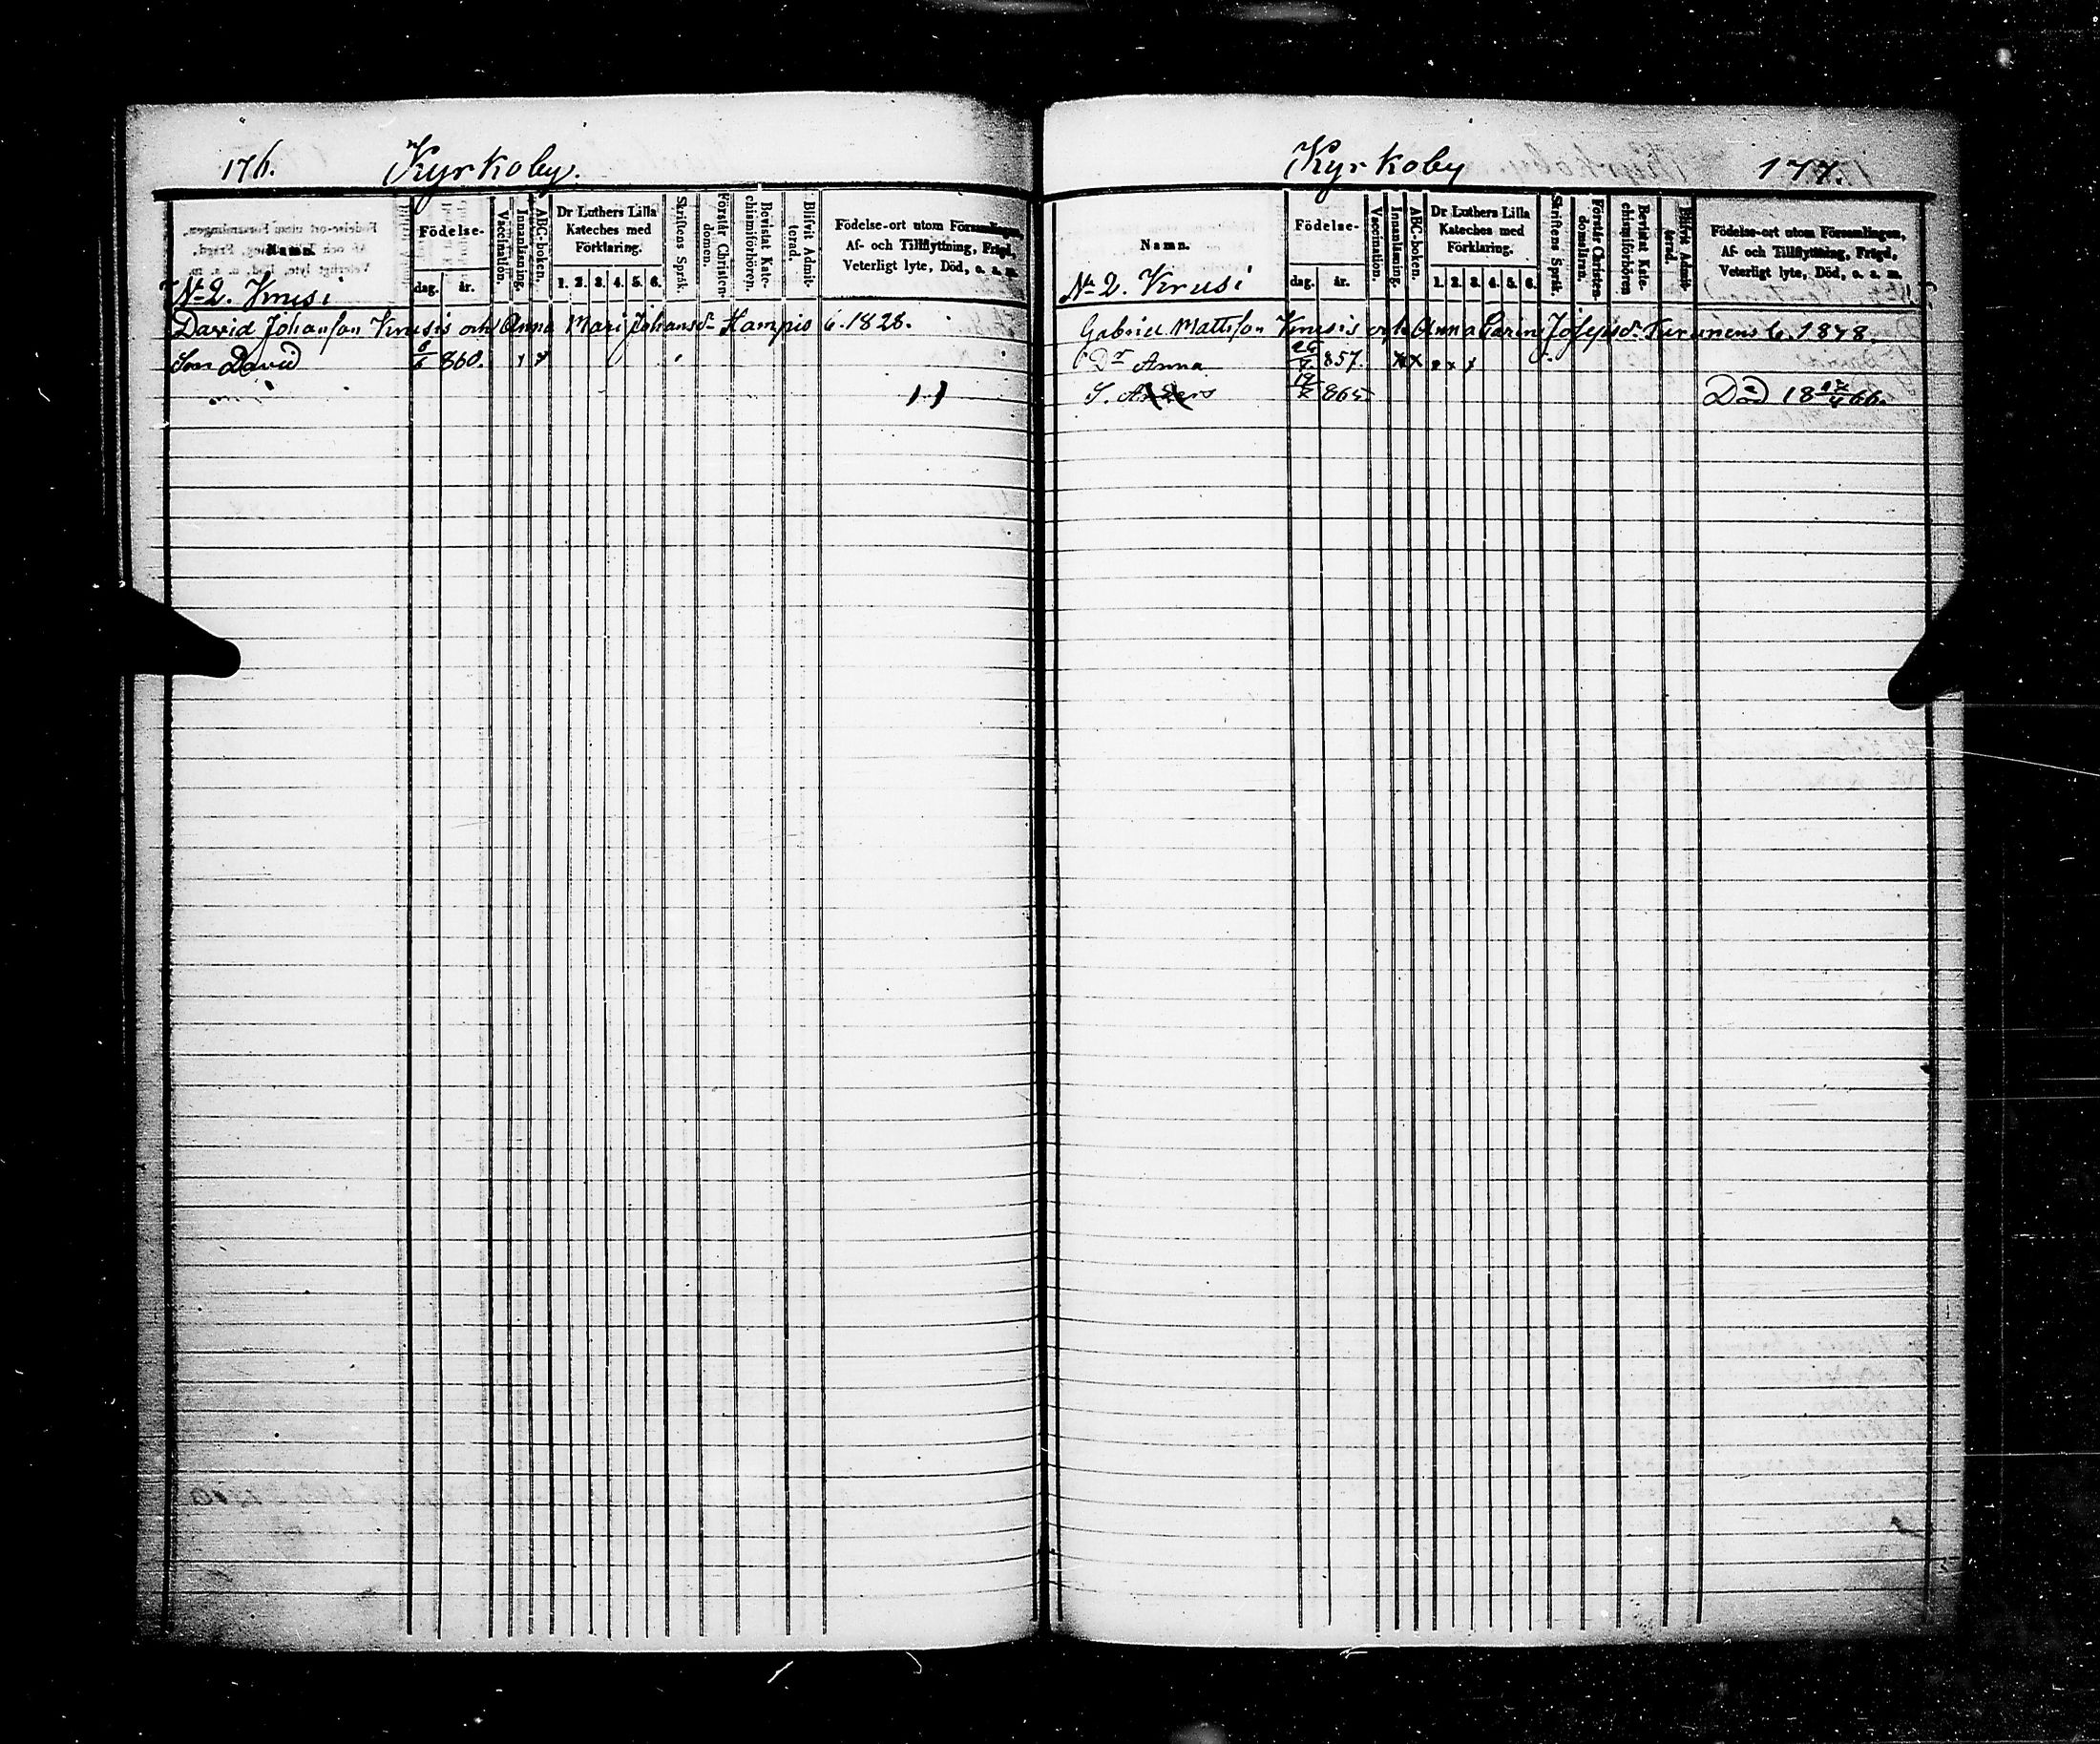 176.
Kyrkoby.
Namn.
Födelse-
dag.
år.
Vaccination.
Innanläsning.
ABC-boken.
Dr Luthers Lilla
Kateches med
Förklaring.
1. 2. 3. 4. 5. 6.
Skriftens Språk.
Förstår Christen-
domen.
Bevistat Kate-
chismiförhören.
Blifvit Admit-
terad.
Födelse-ort utom Församlingen,
Af- och Tillflyttning, Frägd,
Veterligt lyte, Död, o. s. m.
No 2. Krusi
David Johansson Krusis och Anna Mari Johansd:r Hampis b. 1828.
Son David 860.
Kyrkoby
177.
Namn.
Födelse-
dag.
år.
Vaccination.
Innanläsning.
ABC-boken.
Dr Luthers Lilla
Kateches med
Förklaring.
1. 2. 3. 4. 5. 6.
Skriftens Språk.
Förstår Christen-
domsläran.
Bevistat Kate-
chismiförhören
Blifvit Admit-
terad.
Födelse-ort utom Församlingen,
Af- och Tillflyttning, Frägd,
Veterligt lyte, Död, o. s. m.
No 2. Krusi
Gabriel Mattsson Krusis och Anna Carin Josephsd:r b. 1848.
Dr Anna 857.
S. Anders 19 865 Död 18 66.